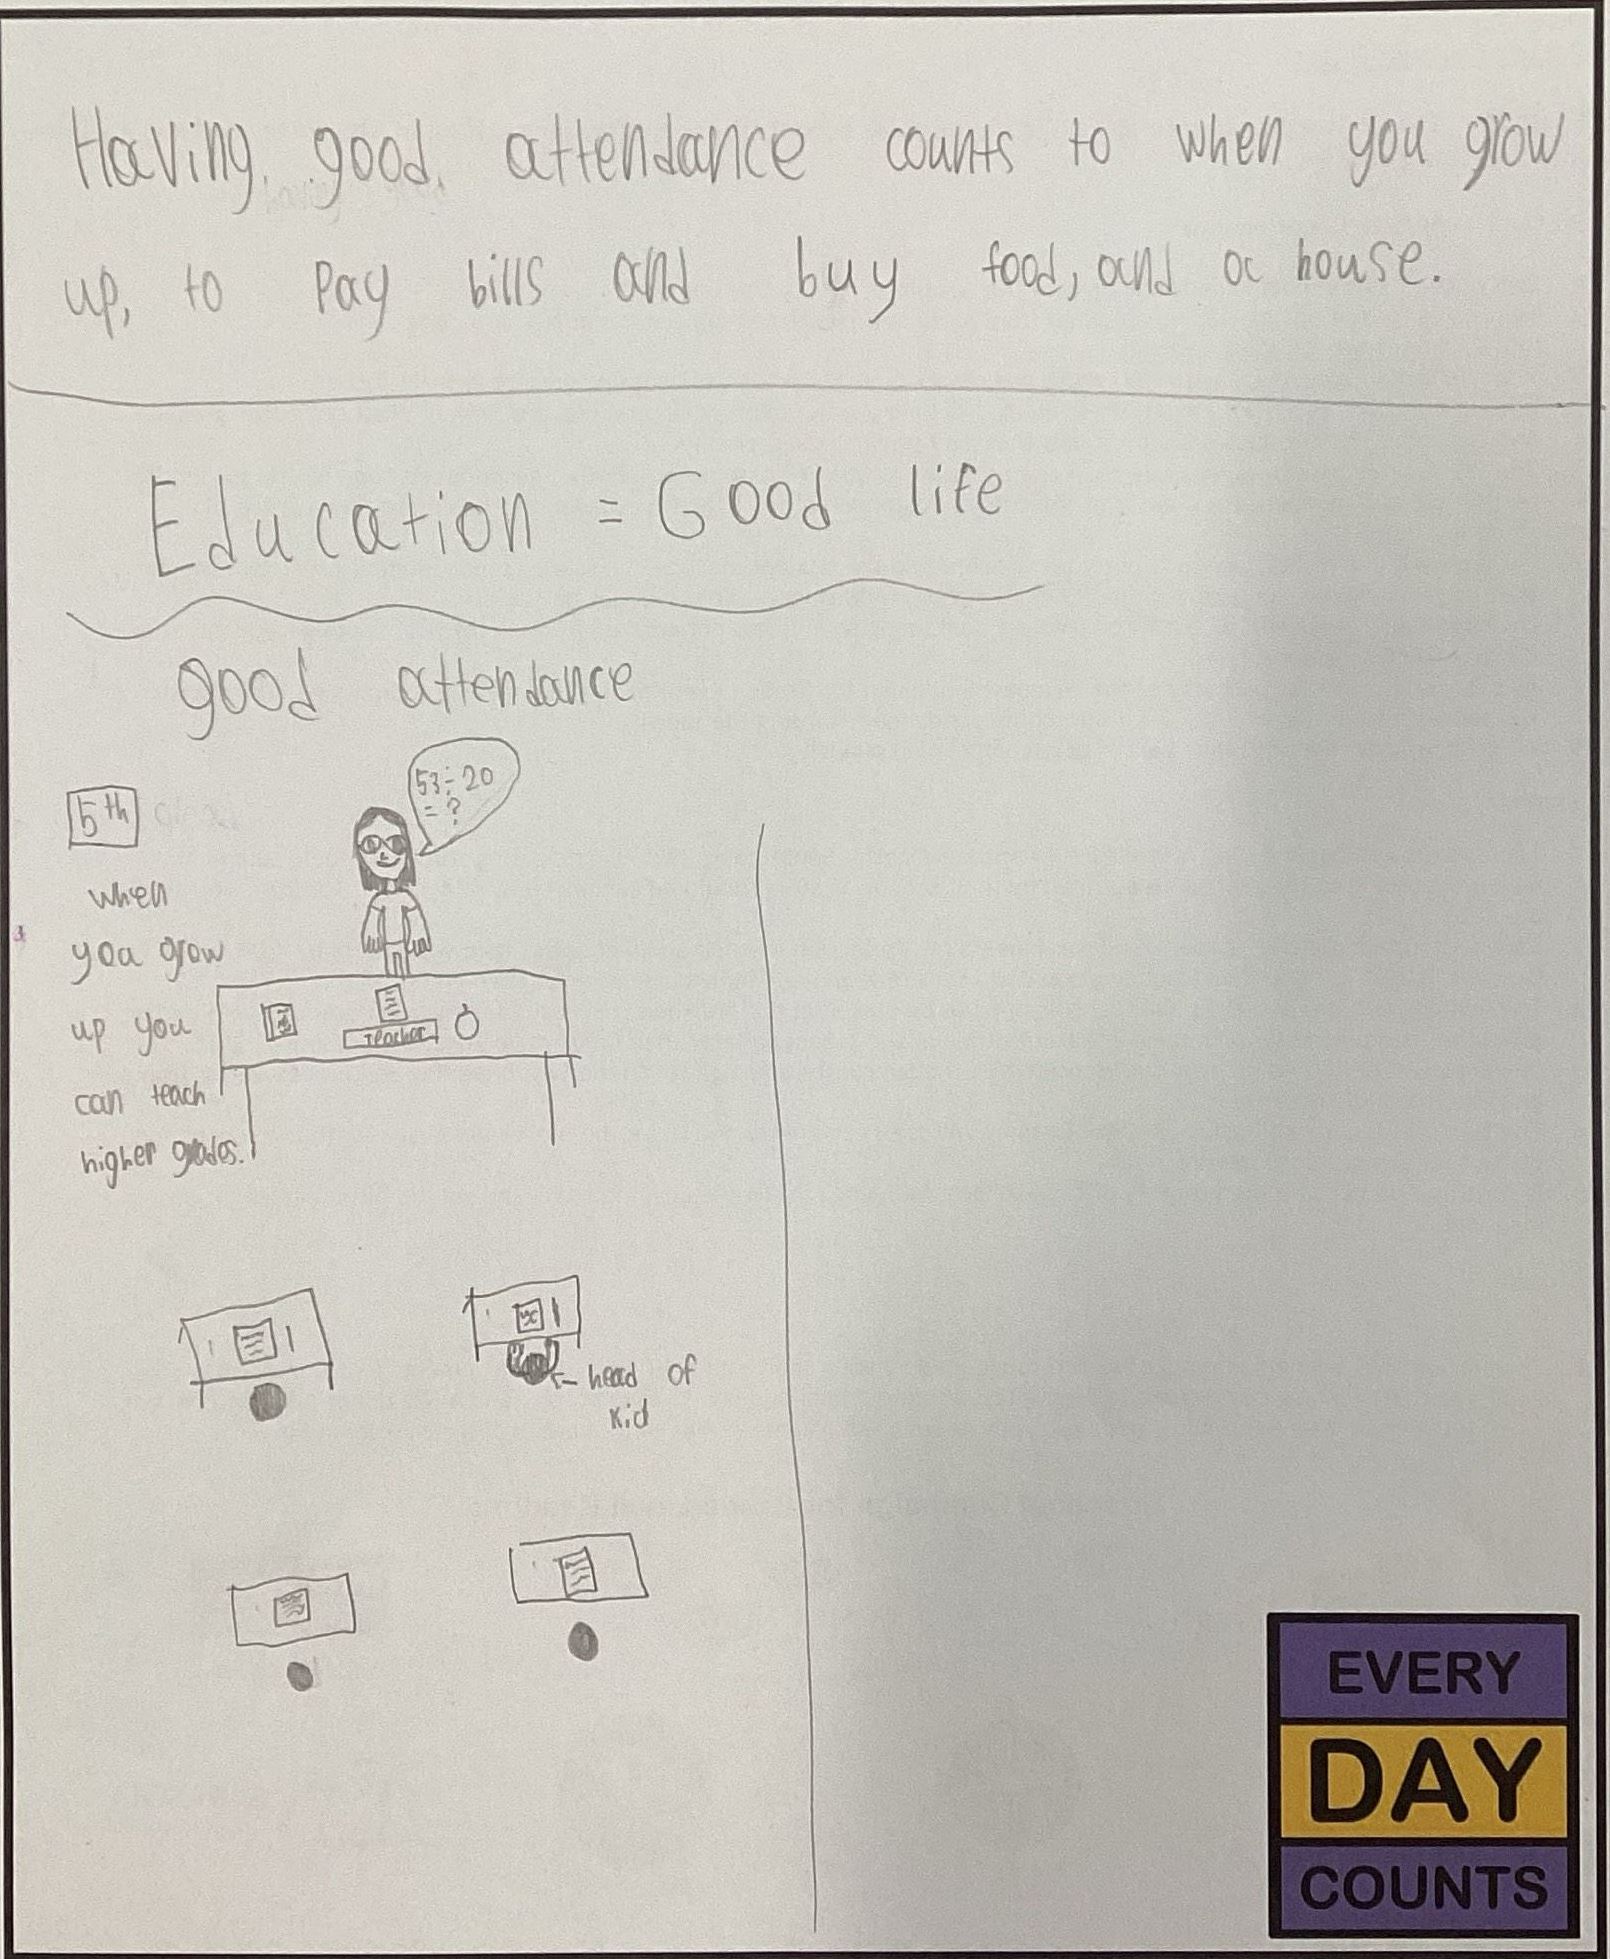 Having good attendance counts to when you grow
up, to Pay bills and buy food, and a house.
Education = Good life
good attendance
53÷20
= ?
5th
when
you grow
up you
can teach
higher grades.
Teacher
head of
kid
EVERY
DAY
COUNTS